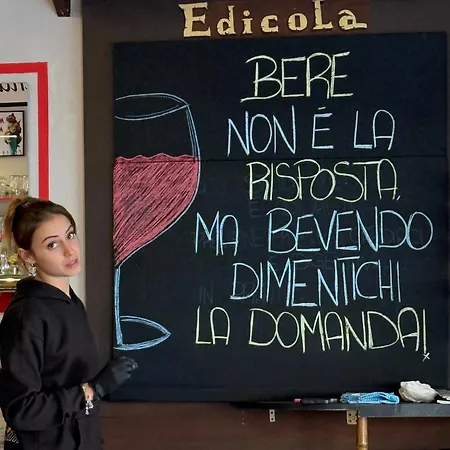 EdicoLa
BERE
NON É LA
RISPOSTA,
MA BEVENDO
DIMENTICHI
LA DOMANDA!